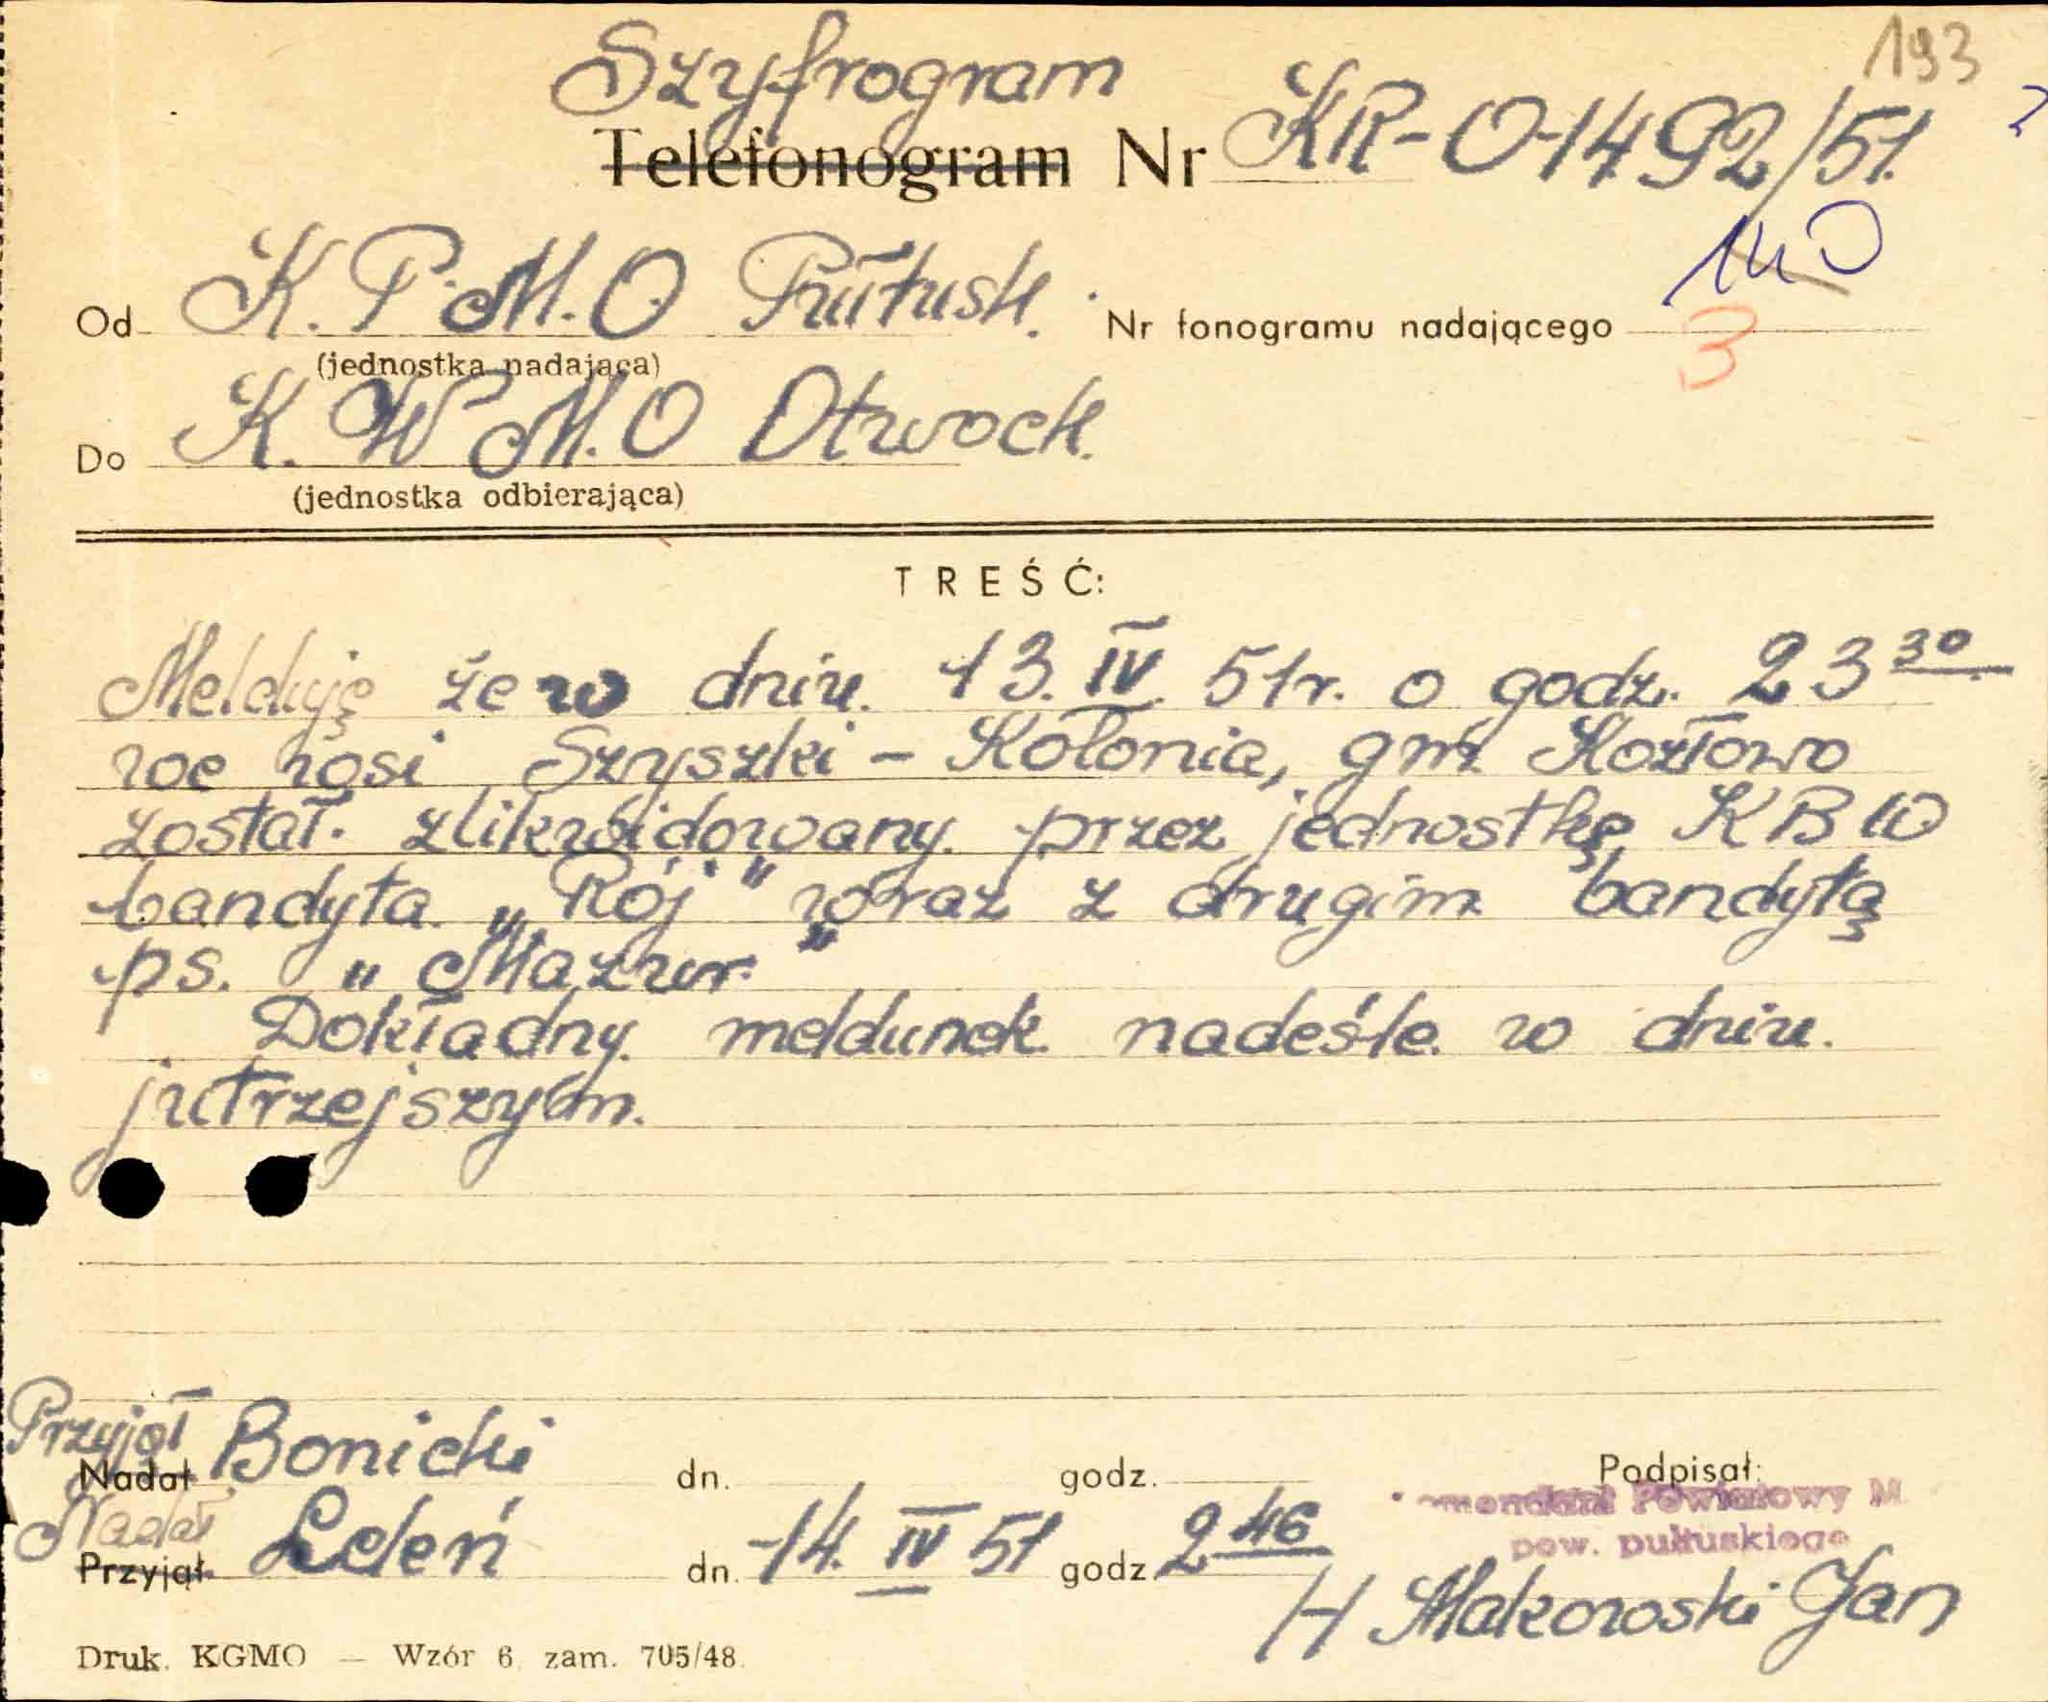 193
Szyfrogram
Telefonogram Nr KR-O-1492/51.
Od K.P.M.O Pułtusk. Nr fonogramu nadającego
(jednostka nadająca)
3
Do K.W.M.O Otwock.
(jednostka odbierająca)
TREŚĆ:
Melduję że w dniu 13.IV.51r. o godz. 23 30
we wsi Szyszki - Kołonia, gm. Kozłowo
został zlikwidowany przez jednostkę KBW
bandyta „Rój" wraz z drugim bandytą
ps. „Mazur"
Dokładny meldunek nadeśle w dniu
jutrzejszym.
Przyjął
Nadał Bonicki dn. godz. Podpisał:
Komendant Powiatowy M
pow. pułtuskiego
Nadał
Przyjął Ledeń dn. 14.IV 51 godz. 2 46
/-/ Makowski Jan
Druk. KGMO — Wzór 6. zam. 705/48.